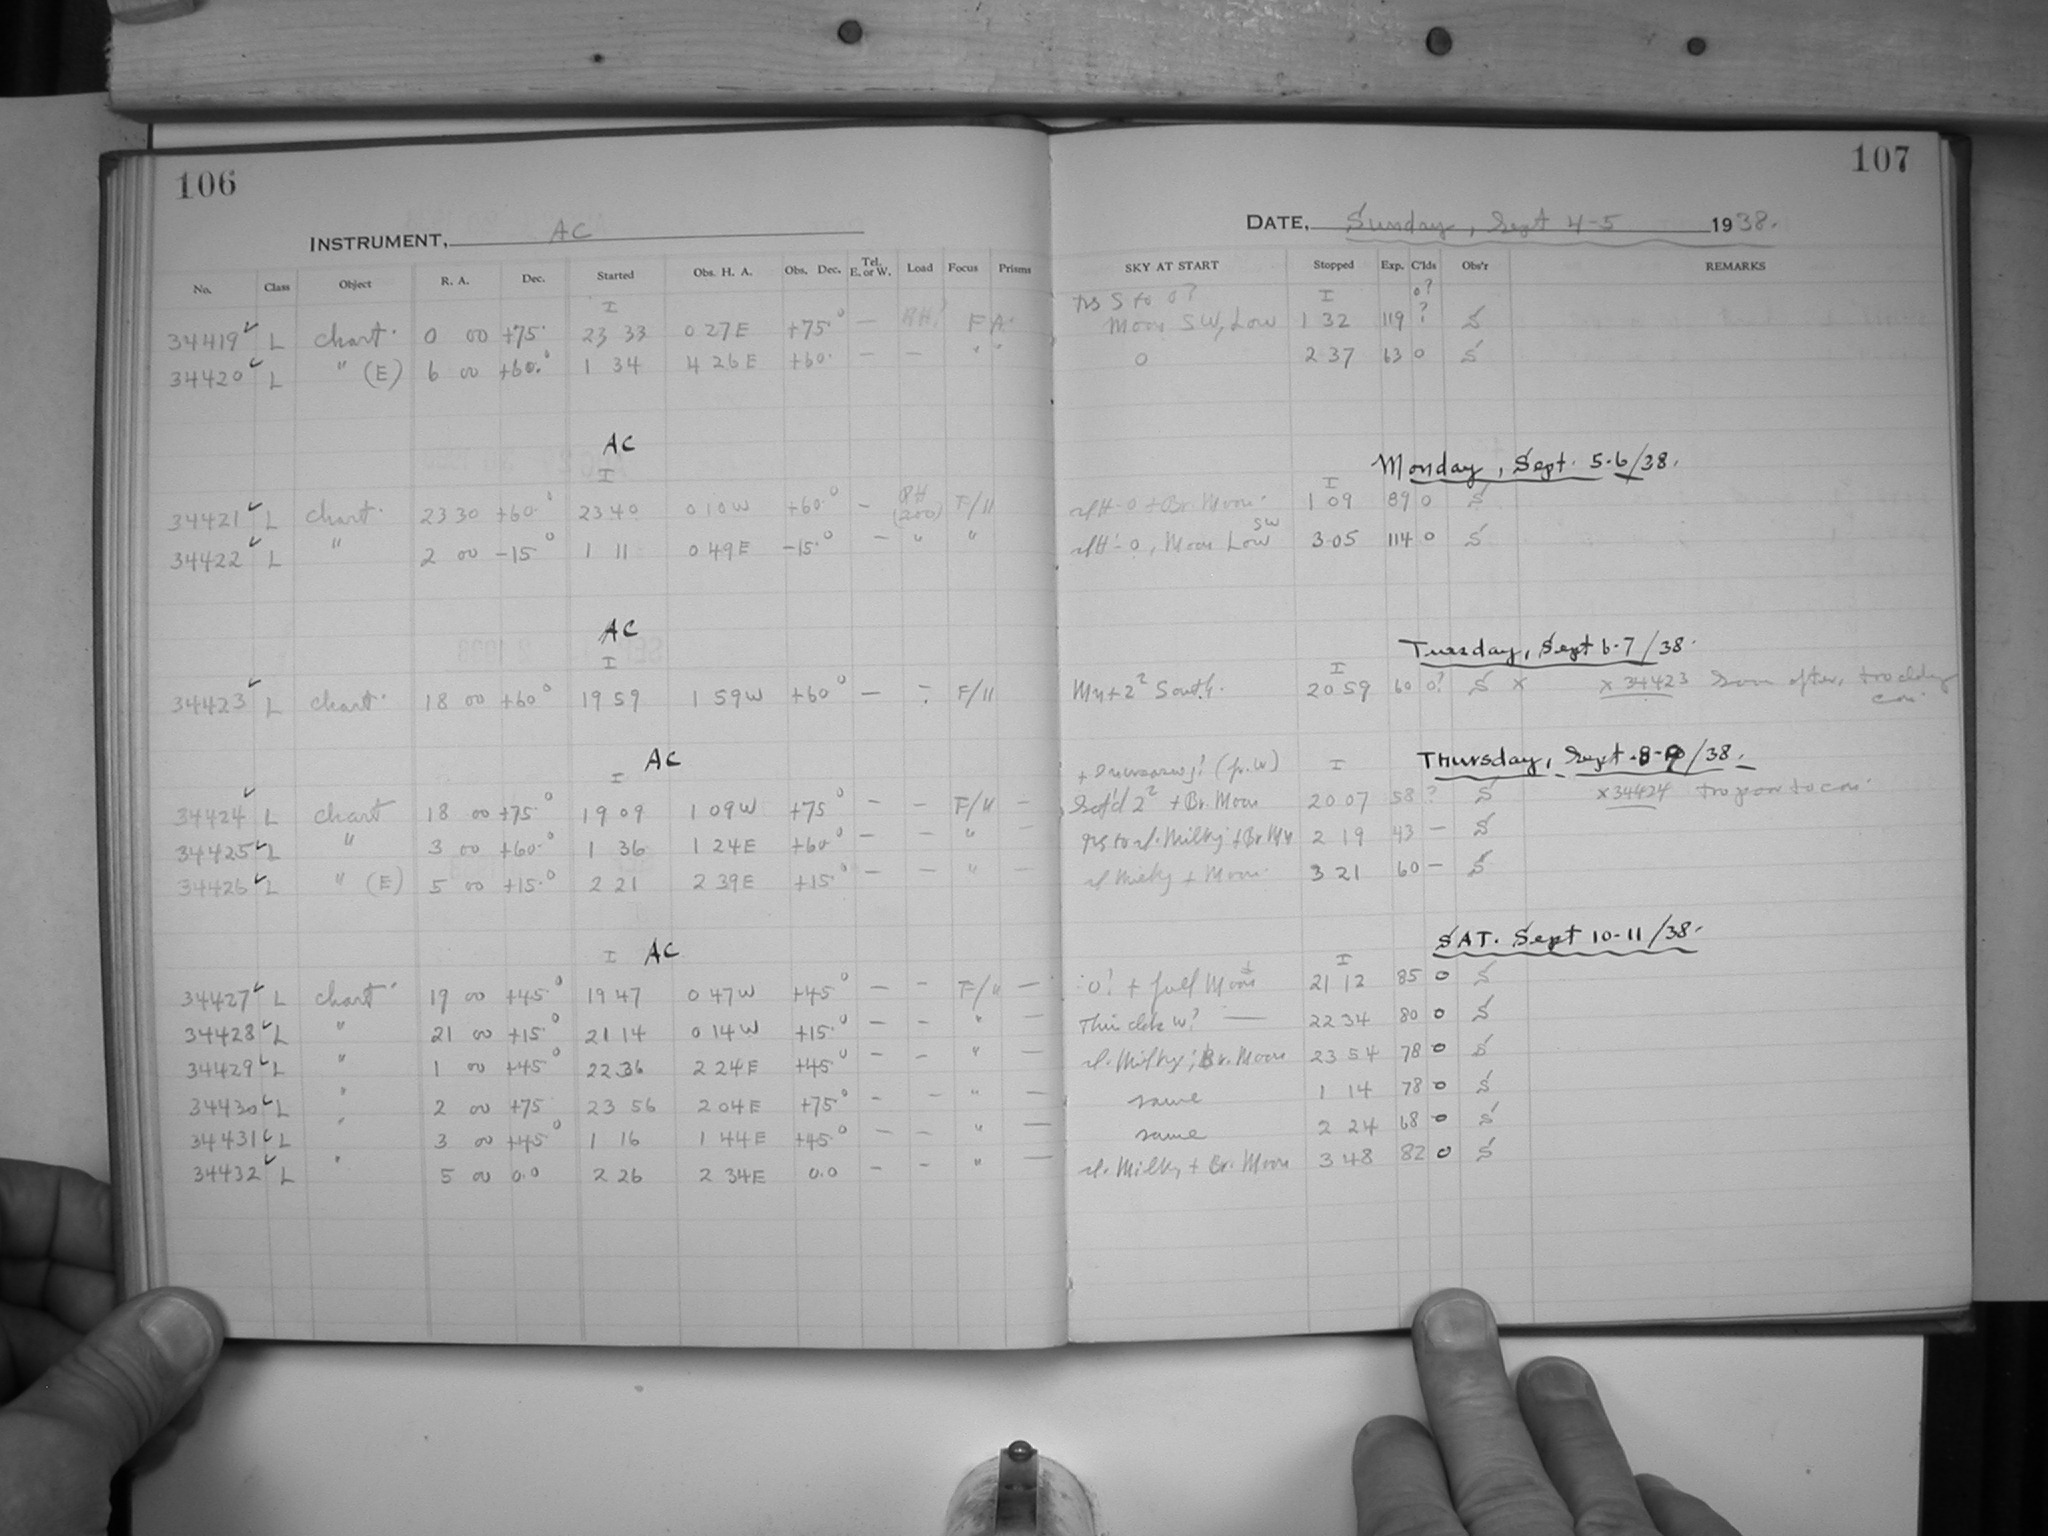 106
INSTRUMENT, AC
No. Class Object R. A. Dec. Started Obs. H. A. Obs. Dec. Tel. E. or W. Load Focus Prisms
I
34419 ✓ L chart. 0 00 +75° 23 33 0 27E +75° — F A.
34420 ✓ L " (E) 6 00 +60.° 1 34 4 26E +60. — — " "
AC
I
34421 ✓ L chart. 23 30 +60° 23 40 0 10W +60.° — RH (200) F/11
34422 ✓ L " 2 00 -15° 1 11 0 49E -15.° — " "
AC
I
34423 ✓ L chart. 18 00 +60° 19 59 1 59W +60° — F/11
I AC
34424 ✓ L chart 18 00 +75° 19 09 1 09W +75° — — F/11 —
34425 ✓ L " 3 00 +60° 1 36 1 24E +60° — — " —
34426 ✓ L " (E) 5 00 +15.° 2 21 2 39E +15.° — — " —
I AC
34427 ✓ L chart. 19 00 +45° 19 47 0 47W +45° — — F/11 —
34428 ✓ L " 21 00 +15.° 21 14 0 14W +15.° — — " —
34429 ✓ L " 1 00 +45° 22 36 2 24E +45° — — " —
34430 ✓ L " 2 00 +75 23 56 2 04E +75° — — " —
34431 ✓ L " 3 00 +45° 1 16 1 44E +45° — — " —
34432 ✓ L " 5 00 0.0 2 26 2 34E 0.0 — — " —
107
DATE, Sunday, Sept 4-5 1938.
SKY AT START Stopped Exp. C'lds Obs'r REMARKS
S to 0? I 0?
Moon SW, Low 1 32 119 ? S
0 2 37 63 0 S
Monday, Sept. 5-6/38.
I
0 + Br. Moon. 1 09 89 0 S
0, Moon Low SW 3 05 114 0 S
Tuesday, Sept 6-7/38.
I
2² South. 20 59 60 0? S x x 34423 Soon after, too cldy
con.
Thursday, Sept. 8-9/38.
I
2² + Br. Moon 20 07 58 ? S x 34424 too poor to con.
Milky + Br. Mn 2 19 43 — S
Milky + Moon. 3 21 60 — S
SAT. Sept 10-11/38.
I
0? + full Moon 21 12 85 0 S
Thin clds W? — 22 34 80 0 S
Milky, Br. Moon 23 54 78 0 S
same 1 14 78 0 S
same 2 24 68 0 S
Milky + Br. Moon 3 48 82 0 S